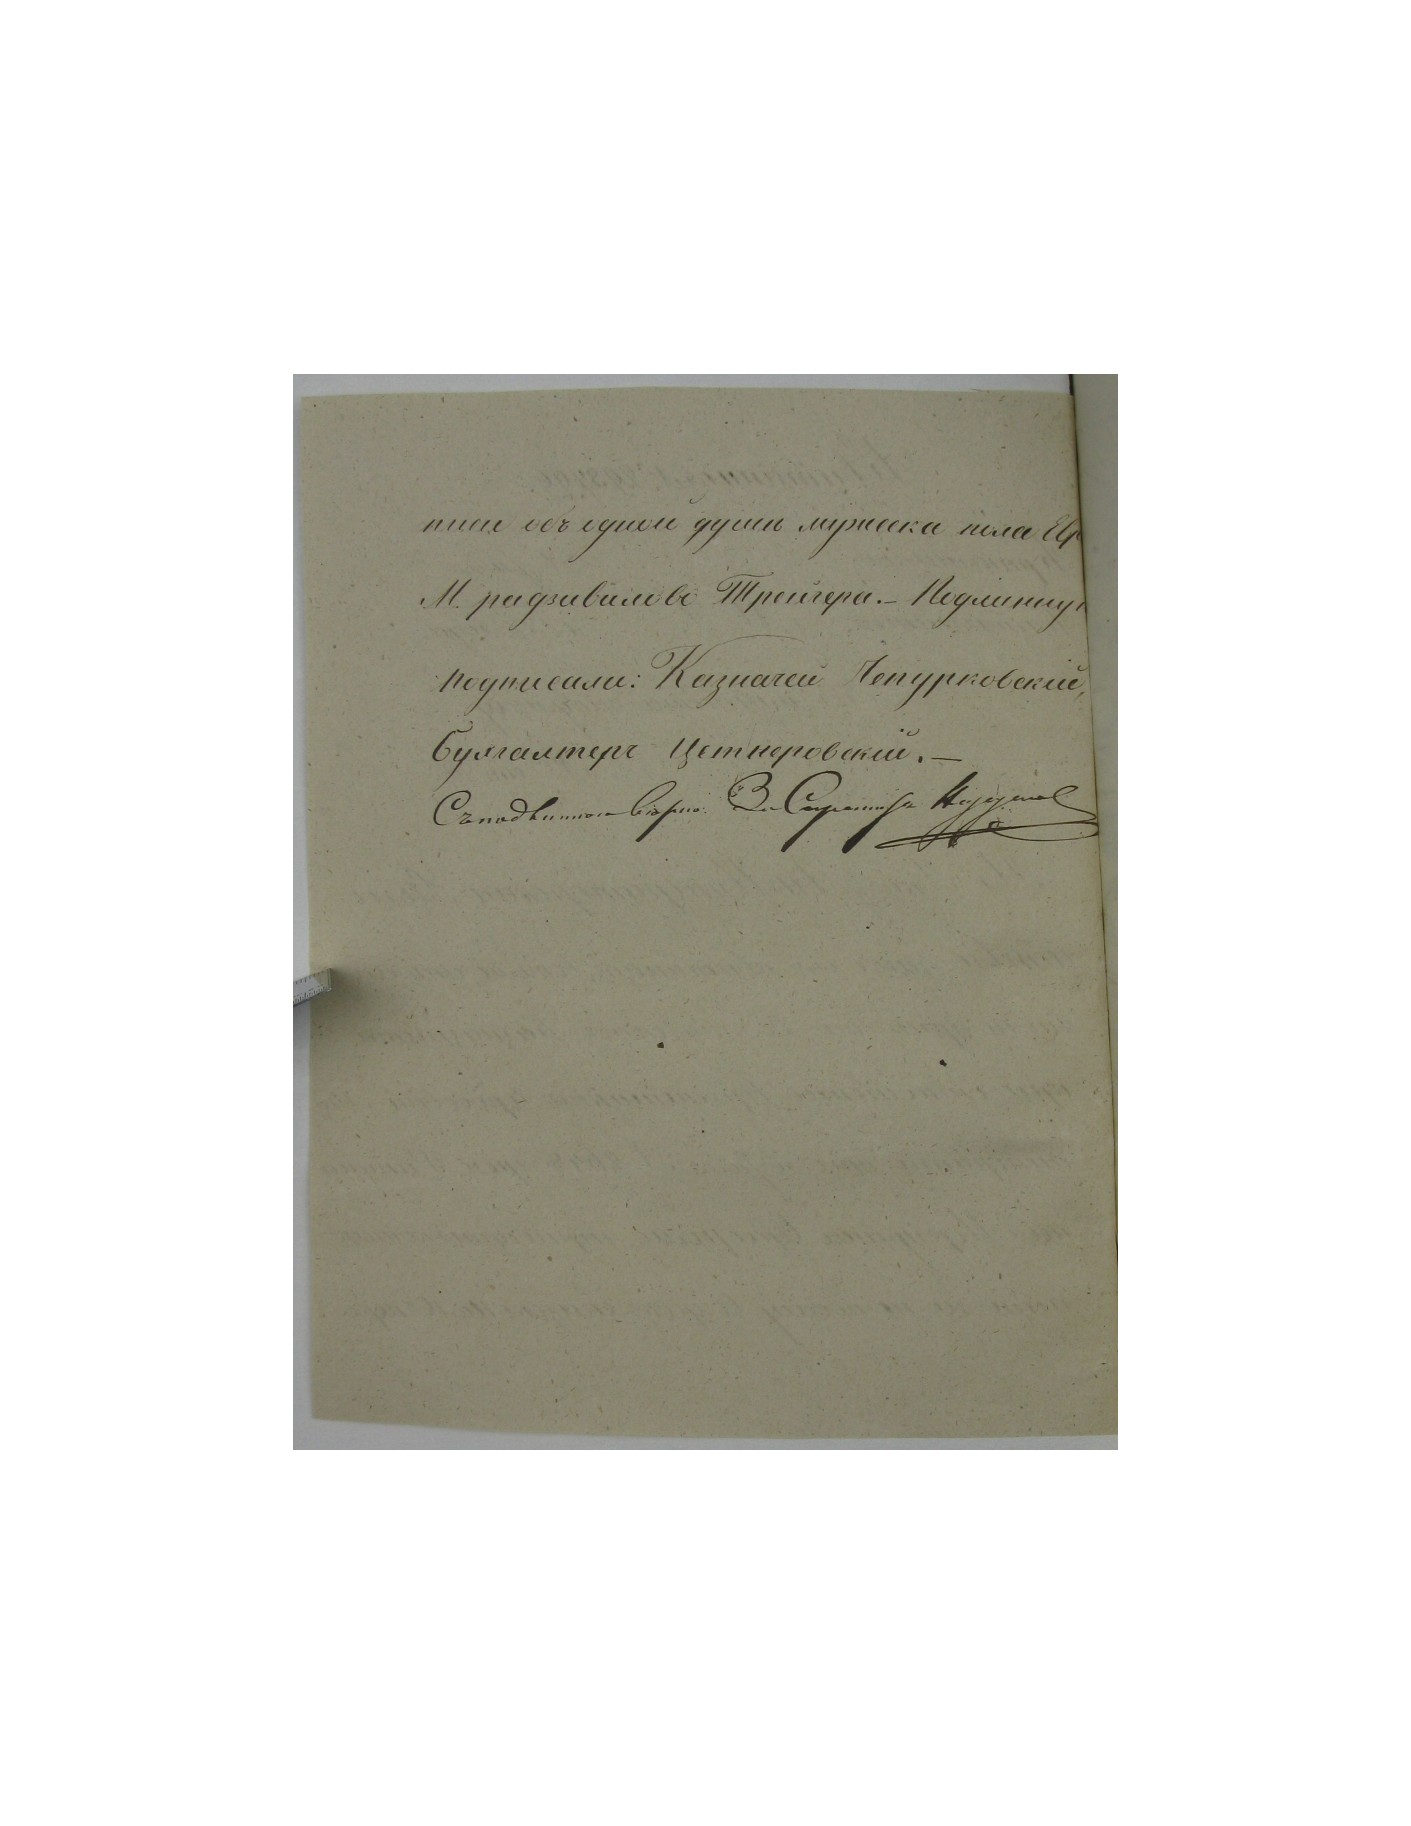 писи объ одной души мужеска пола
М. радзивилово Трейгера. — Подлинную
подписали: Казначей Чепурковский,
бухгалтеръ Цетнеровский. —
Съ подлиннымъ вѣрно: За Секретаря